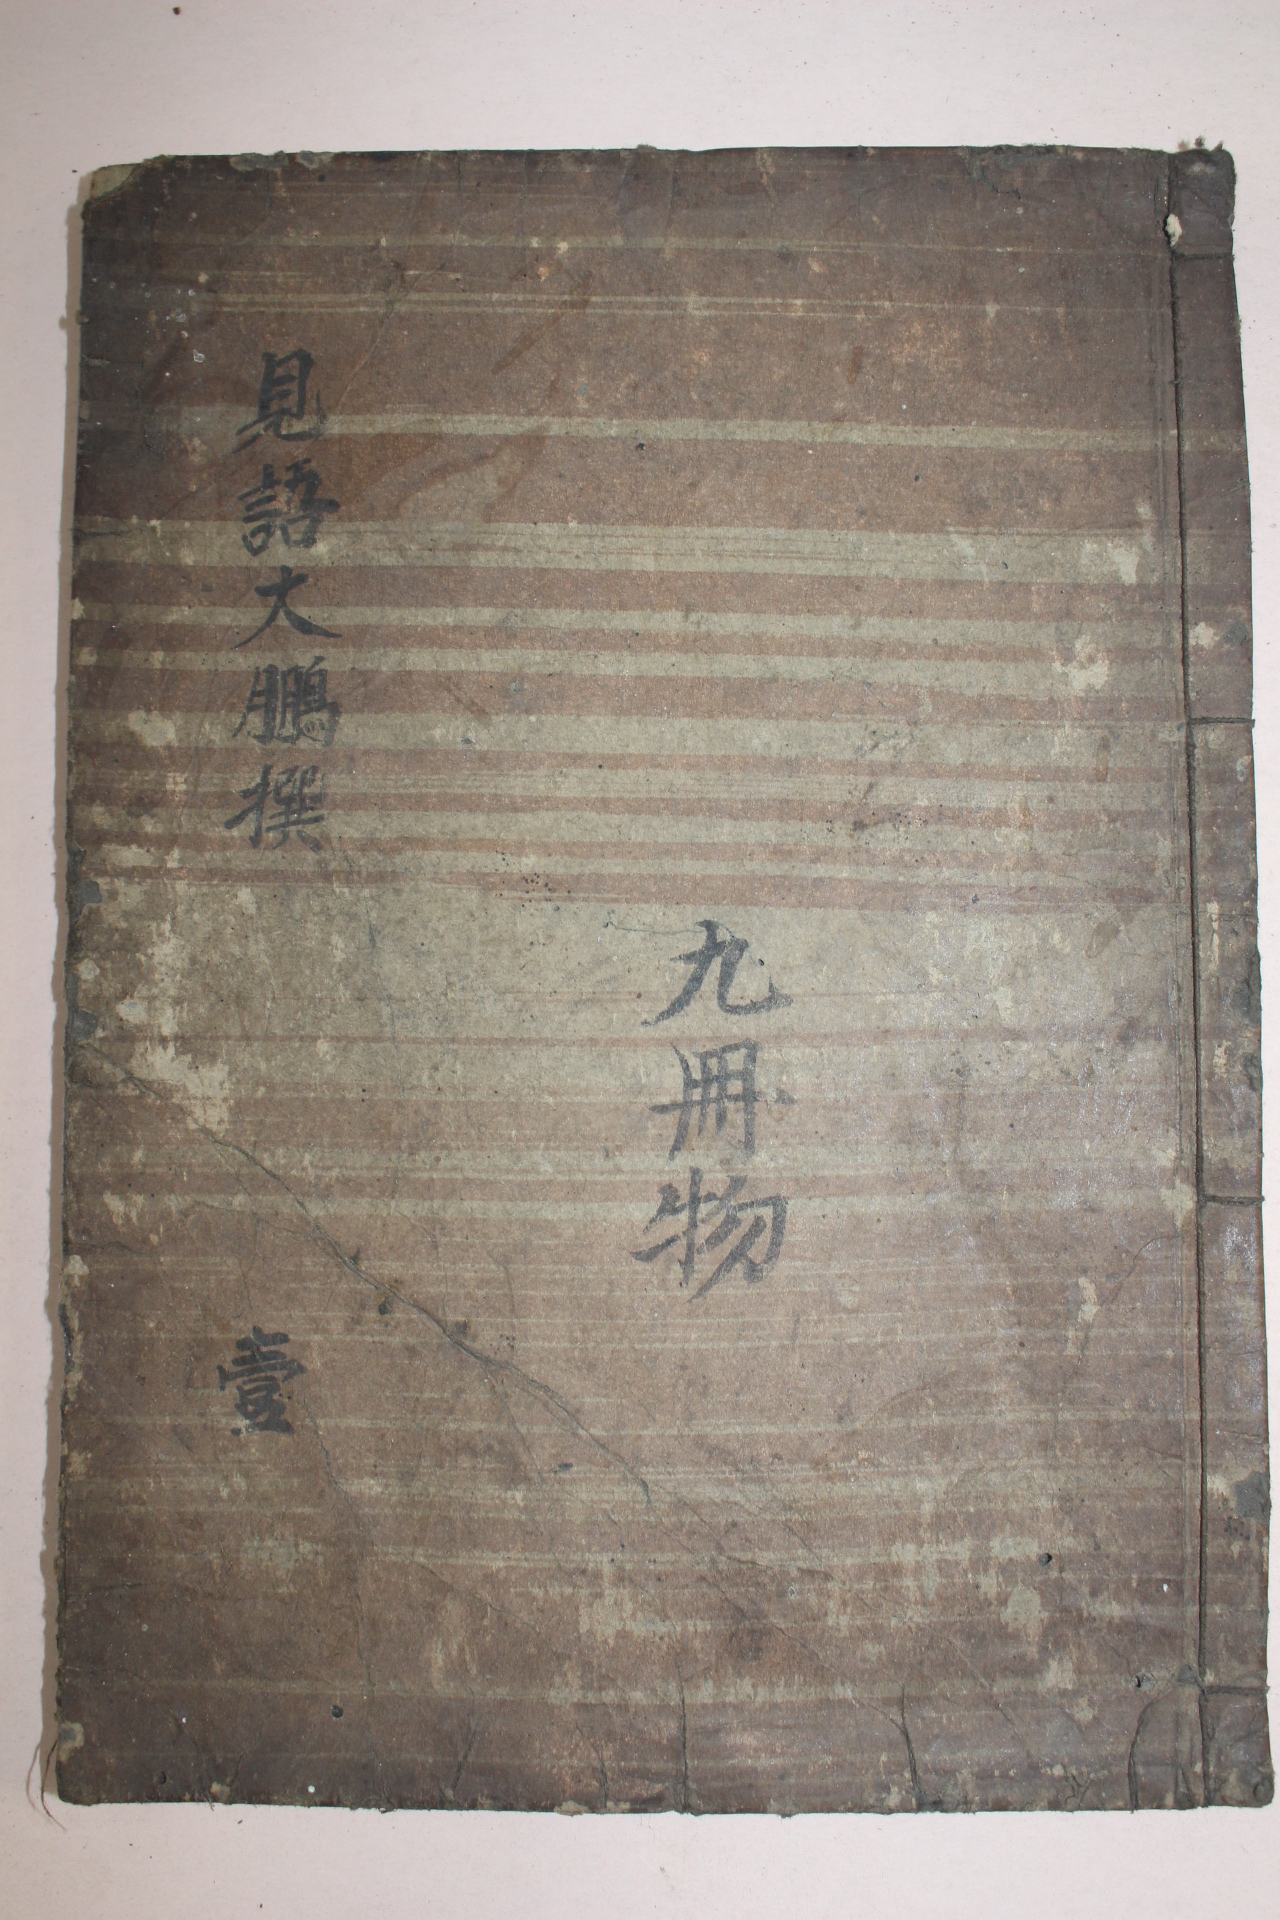 九冊物
見語大鵬撰
壹